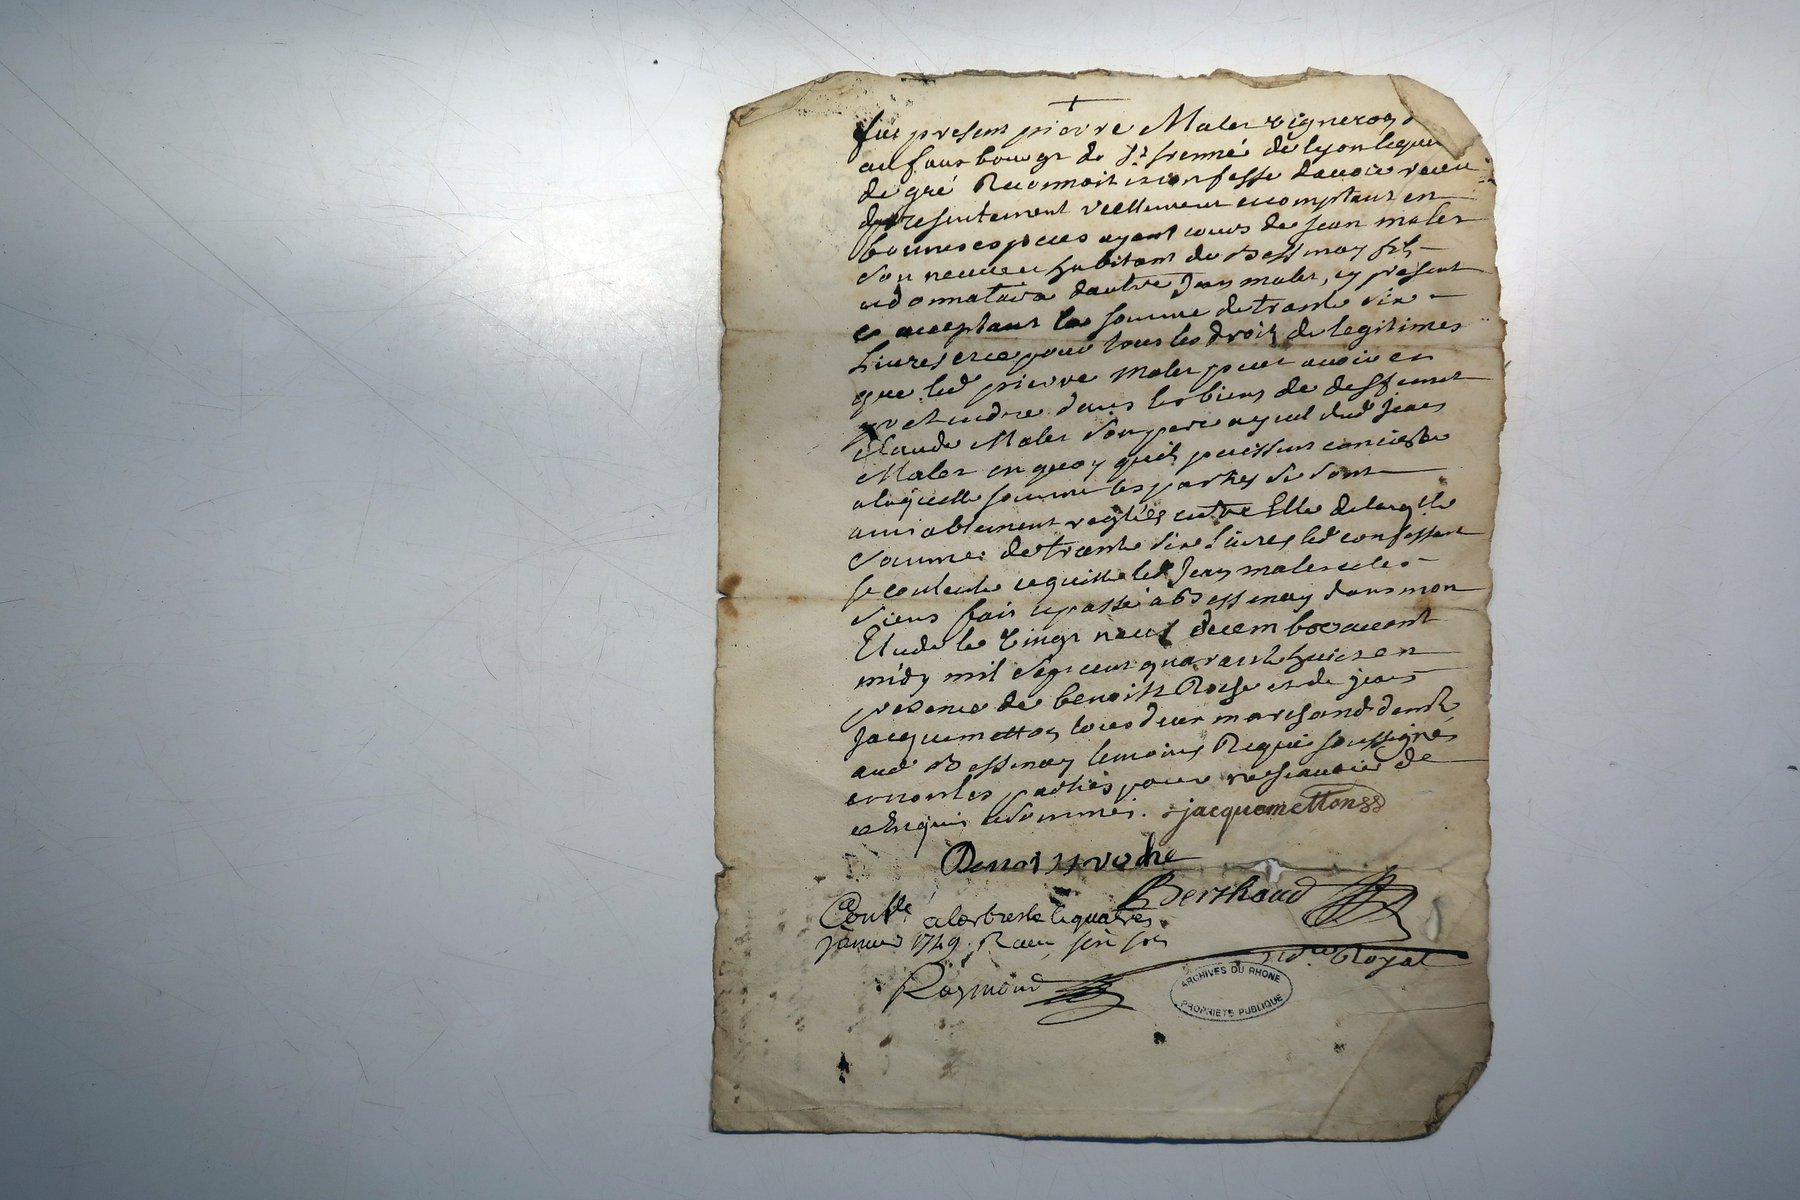 fut present pierre Maler vigneron
au faux bourg de St Irenné de lyon lequel
de gré Reconnoit et confesse d'avoir receu
presentement reellement et comptant en
bonnes especes ayant cours de Jean maler
son neveu habitant de Bessenay fils
et donnataire d'autre Jean maler, cy present
et acceptant la somme de trante six
Livres et ce pour tous les droits de legitimes
que led pierre Maler peut avoir et
pretendre dans les biens de deffunt
Claude Maler son pere ayeul dud Jean
Maler en quoy quils puissent concister
a laquelle somme les parties se sont
amiablement reglées entre Elle de laquelle
somme de trante six Livres led confessant
se contente et quitte led Jean maler et les
siens fait et passé a Bessenay dans mon
Etude le vingt neuf decembre avant
midy mil sept cent quarante huit en
presence de benoist Roche et de jean
Jacquemetton tous deux marchands demt
aud Bessenay temoins Requis soussignés
et non les parties pour ne scavoir de
ce Enquis et sommés. jacquemetton
Benoist roche
Berthaud
Conllé a larbresle le quatre
janvier 1749. Receu six sols
nore Royal
Raymond
ARCHIVES DU RHONE
PROPRIETE PUBLIQUE